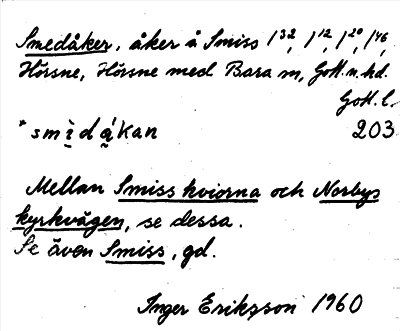 Smedåker, åker å Smiss 1³², 1¹², 1²⁰, 1⁴⁶,
Hörsne, Hörsne med Bara sn, Gotl. n. hd.
Gotl. l.
*smìdákan 203
Mellan Smiss kviorna och Norbys
kyrkvägen, se dessa.
Se även Smiss, gd.
Inger Eriksson 1960